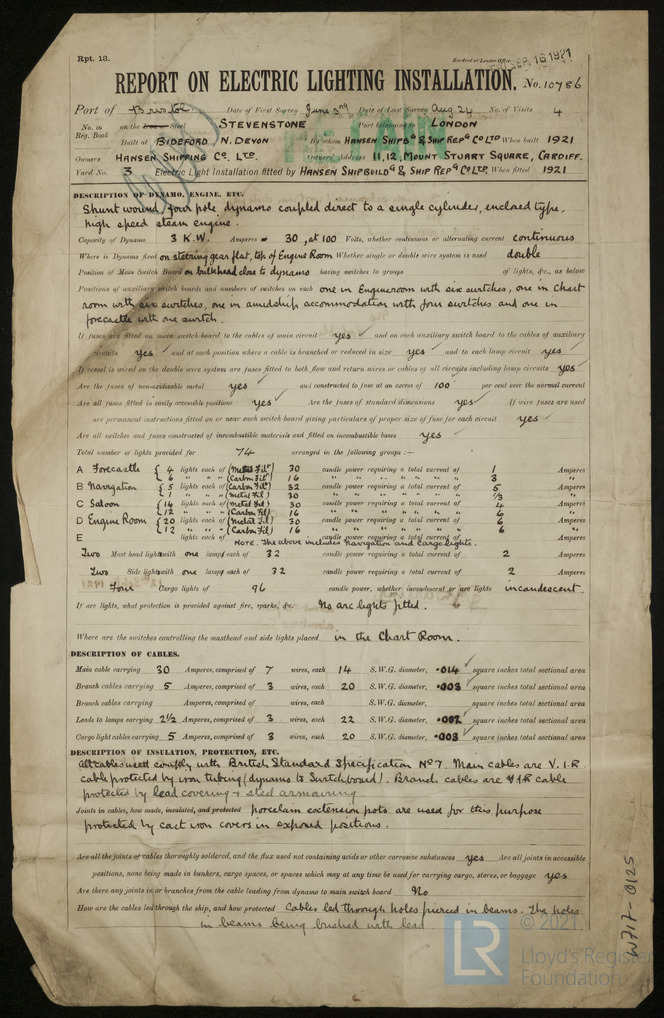 Rpt. 13.
Received at London Office SEP 16 1921
REPORT ON ELECTRIC LIGHTING INSTALLATION. No. 10786
Port of Bristol Date of First Survey June 3rd Date of Last Survey Aug 24 No. of Visits 4
No. in Reg. Book on the Iron or Steel STEVENSTONE Port belonging to LONDON
Built at BIDEFORD / N. DEVON By whom HANSEN SHIPBG & SHIP REPG CO LTD When built 1921
Owners HANSEN SHIPPING CO. LTD. Owners' Address 11,12, MOUNT STUART SQUARE, CARDIFF.
Yard No. 3 Electric Light Installation fitted by HANSEN SHIPBUILDG & SHIP REPG CO LTD. When fitted 1921
RETAIN
DESCRIPTION OF DYNAMO, ENGINE, ETC.
Shunt wound, four pole, dynamo coupled direct to a single cylinder, enclosed type,
high speed steam engine.
Capacity of Dynamo 3 K.W. Amperes 30, at 100 Volts, whether continuous or alternating current continuous
Where is Dynamo fixed on steering gear flat, top of Engine Room Whether single or double wire system is used double
Position of Main Switch Board on bulkhead close to dynamo having switches to groups of lights, &c., as below
Positions of auxiliary switch boards and numbers of switches on each one in Engineroom with six switches, one in Chart
room with six switches, one in amidship accommodation with four switches and one in
forecastle with one switch.
If fuses are fitted on main switch board to the cables of main circuit yes and on each auxiliary switch board to the cables of auxiliary
circuits yes and at each position where a cable is branched or reduced in size yes and to each lamp circuit yes
If vessel is wired on the double wire system are fuses fitted to both flow and return wires or cables of all circuits including lamp circuits yes
Are the fuses of non-oxidizable metal yes and constructed to fuse at an excess of 100 per cent over the normal current
Are all fuses fitted in easily accessible positions yes Are the fuses of standard dimensions yes If wire fuses are used
are permanent instructions fitted on or near each switch board giving particulars of proper size of fuse for each circuit yes
Are all switches and fuses constructed of incombustible materials and fitted on incombustible bases yes
Total number of lights provided for 74 arranged in the following groups :—
A Forecastle { 4 lights each of (Metal Filt) 30 candle power requiring a total current of 1 Amperes
6 " " " (Carbon Filt) 16 " " " " " " " 3 "
B Navigation { 5 lights each of (Carbon Filt) 32 candle power requiring a total current of 5 Amperes
1 " " " (Metal Fil) 30 " " " " " " " 1/3 "
C Saloon { 14 lights each of (Metal Fil) 30 candle power requiring a total current of 4 Amperes
12 " " " (Carbon Fil) 16 " " " " " " " 6 "
D Engine Room { 20 lights each of (Metal Fil) 30 candle power requiring a total current of 6 Amperes
12 " " " (Carbon Fil) 16 " " " " " " " 6 "
E lights each of candle power requiring a total current of Amperes
NOTE. The above includes Navigation and Cargo lights.
Two Mast head lights with one lamp each of 32 candle power requiring a total current of 2 Amperes
Two Side lights with one lamp each of 32 candle power requiring a total current of 2 Amperes
Four Cargo lights of 96 candle power, whether incandescent or arc lights incandescent.
If arc lights, what protection is provided against fire, sparks, &c. No arc lights fitted.
Where are the switches controlling the masthead and side lights placed in the Chart Room.
DESCRIPTION OF CABLES.
Main cable carrying 30 Amperes, comprised of 7 wires, each 14 S.W.G. diameter, .014 square inches total sectional area
Branch cables carrying 5 Amperes, comprised of 3 wires, each 20 S.W.G. diameter, .003 square inches total sectional area
Branch cables carrying Amperes, comprised of wires, each S.W.G. diameter, square inches total sectional area
Leads to lamps carrying 2½ Amperes, comprised of 3 wires, each 22 S.W.G. diameter, .002 square inches total sectional area
Cargo light cables carrying 5 Amperes, comprised of 3 wires, each 20 S.W.G. diameter, .003 square inches total sectional area
DESCRIPTION OF INSULATION, PROTECTION, ETC.
All cables used comply with British Standard Specification No 7. Main cables are V.I.R.
cable protected by iron tubing (dynamo to Switchboard). Branch cables are V.I.R. cable
protected by lead covering + steel armouring
Joints in cables, how made, insulated, and protected porcelain extension pots are used for this purpose
protected by cast iron covers in exposed positions.
Are all the joints of cables thoroughly soldered, and the flux used not containing acids or other corrosive substances yes Are all joints in accessible
positions, none being made in bunkers, cargo spaces, or spaces which may at any time be used for carrying cargo, stores, or baggage yes
Are there any joints in or branches from the cable leading from dynamo to main switch board No
How are the cables led through the ship, and how protected Cables led through holes pierced in beams. The holes
in beams being brushed with lead
W717-0125
© 2021
LR Lloyd's Register
Foundation